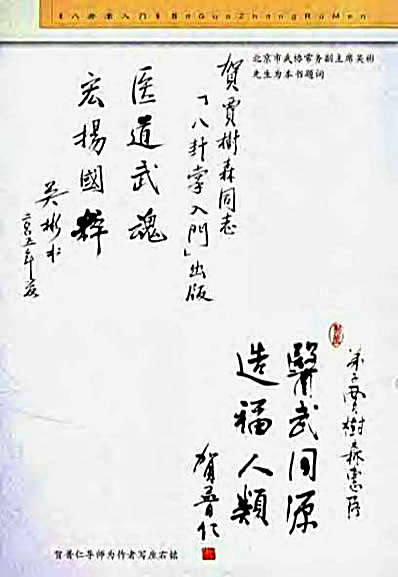 《八卦掌入门》BaGuaZhangRuMen
北京市武协常务副主席吴彬
先生为本书题词
賀賈樹森同志
「八卦掌入門」出版
医道武魂
宏揚國粹
吴彬
二〇〇五年
弟子賈樹森惠存
醫武同源
造福人類
賀普仁
贺普仁导师为作者写座右铭